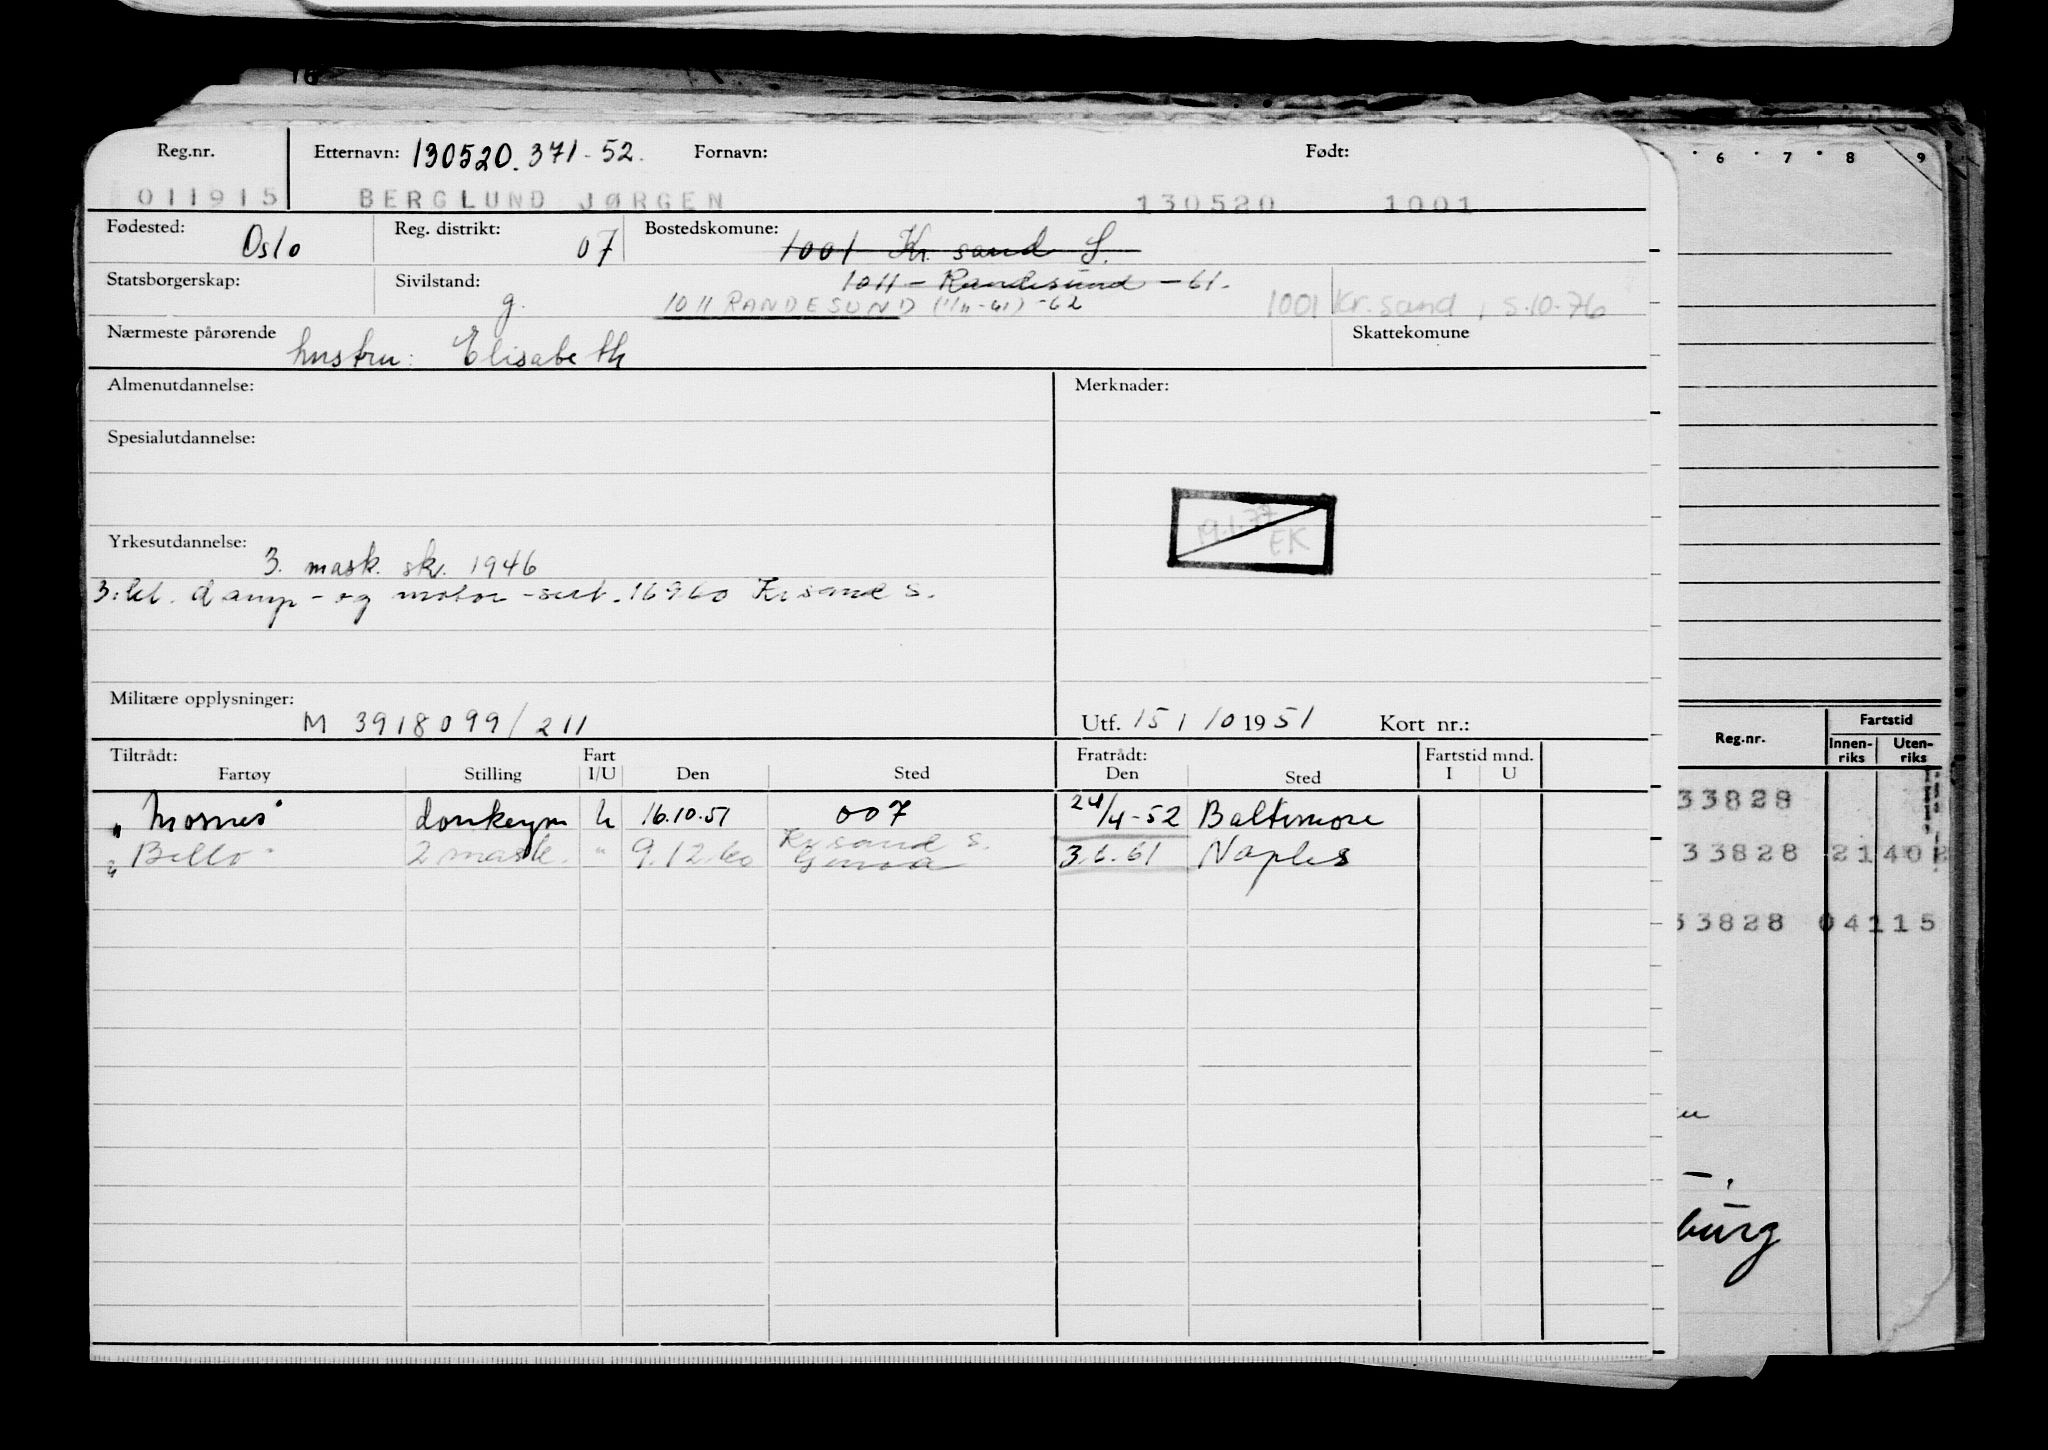 Reg.nr. Etternavn: 130520.371-52. Fornavn: Født:
011915 BERGLUND JØRGEN 130520 1001
Fødested: Oslo Reg. distrikt: 07 Bostedskomune: 1001 Kr. sand S.
Statsborgerskap: Sivilstand: g. 1011 - Randesund - 61.
1011 RANDESUND (1/11-61) -62 1001 Kr.sand, 5.10.76
Nærmeste pårørende hustru: Elisabeth Skattekomune
Almenutdannelse: Merknader:
Spesialutdannelse:
19.1.77
EK
Yrkesutdannelse: 3. mask. sk. 1946
3. kl. damp- og motor-sert. 16960 Kr sand S.
Militære opplysninger: M 3918099/211 Utf. 15 / 10 1951 Kort nr.:
Tiltrådt: Fart Fratrådt: Fartstid mnd.
Fartøy Stilling I/U Den Sted Den Sted I U
"Mosnes" donkeym u 16.10.51 007 24/4-52 Baltimore
"Bello" 2 mask. " 9.12.60 Kr sand S. Genoa 3.6.61 Naples
6 7 8 9
Reg.nr. Fartstid
Innen-riks Uten-riks
33828
33828 21402
33828 04115
burg